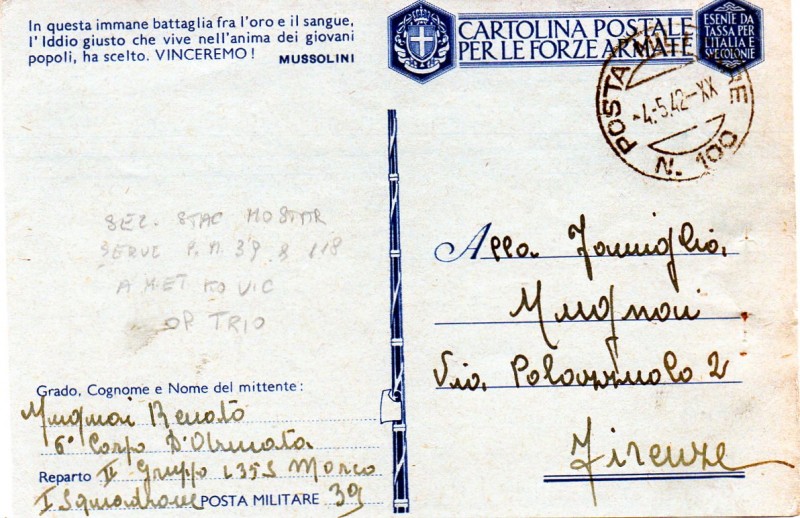 In questa immane battaglia fra l'oro e il sangue,
l'Iddio giusto che vive nell'anima dei giovani
popoli, ha scelto. VINCEREMO! MUSSOLINI
CARTOLINA POSTALE
PER LE FORZE ARMATE
ESENTE DA
TASSA PER
L'ITALIA E
SUE COLONIE
POSTA MILITARE
-4.5.42-XX
N. 100
SEZ. STAC MOSTAR
SERVE P.M 39 & 118
A METKOVIC
OP TRIO
Alla Famiglia
Mugnai
Via Palazzuolo 2
Firenze
Grado, Cognome e Nome del mittente:
Mugnai Renato
6° Corpo D'Armata
Reparto II Gruppo
I Squadrone POSTA MILITARE 39